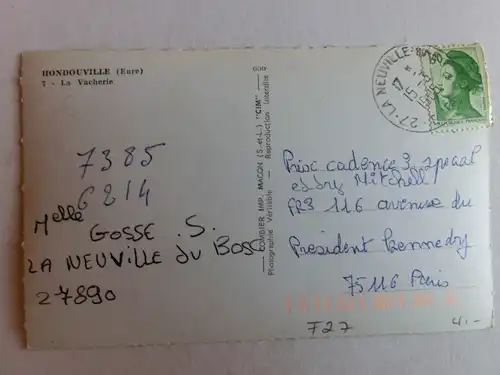 HONDOUVILLE (Eure)
7 - La Vacherie
7385
6214
Melle
GOSSE . S.
LA NEUVILLE du BOSC
27890
COMBIER IMP. MACON (S.-et-L.) "CIM"
Photographie Véritable — Reproduction Interdite
27 - LA NEUVILLE
cadence 3, spécial
et Mitchell
116 avenue du
President Kennedy
75116 Paris
F27
4.-